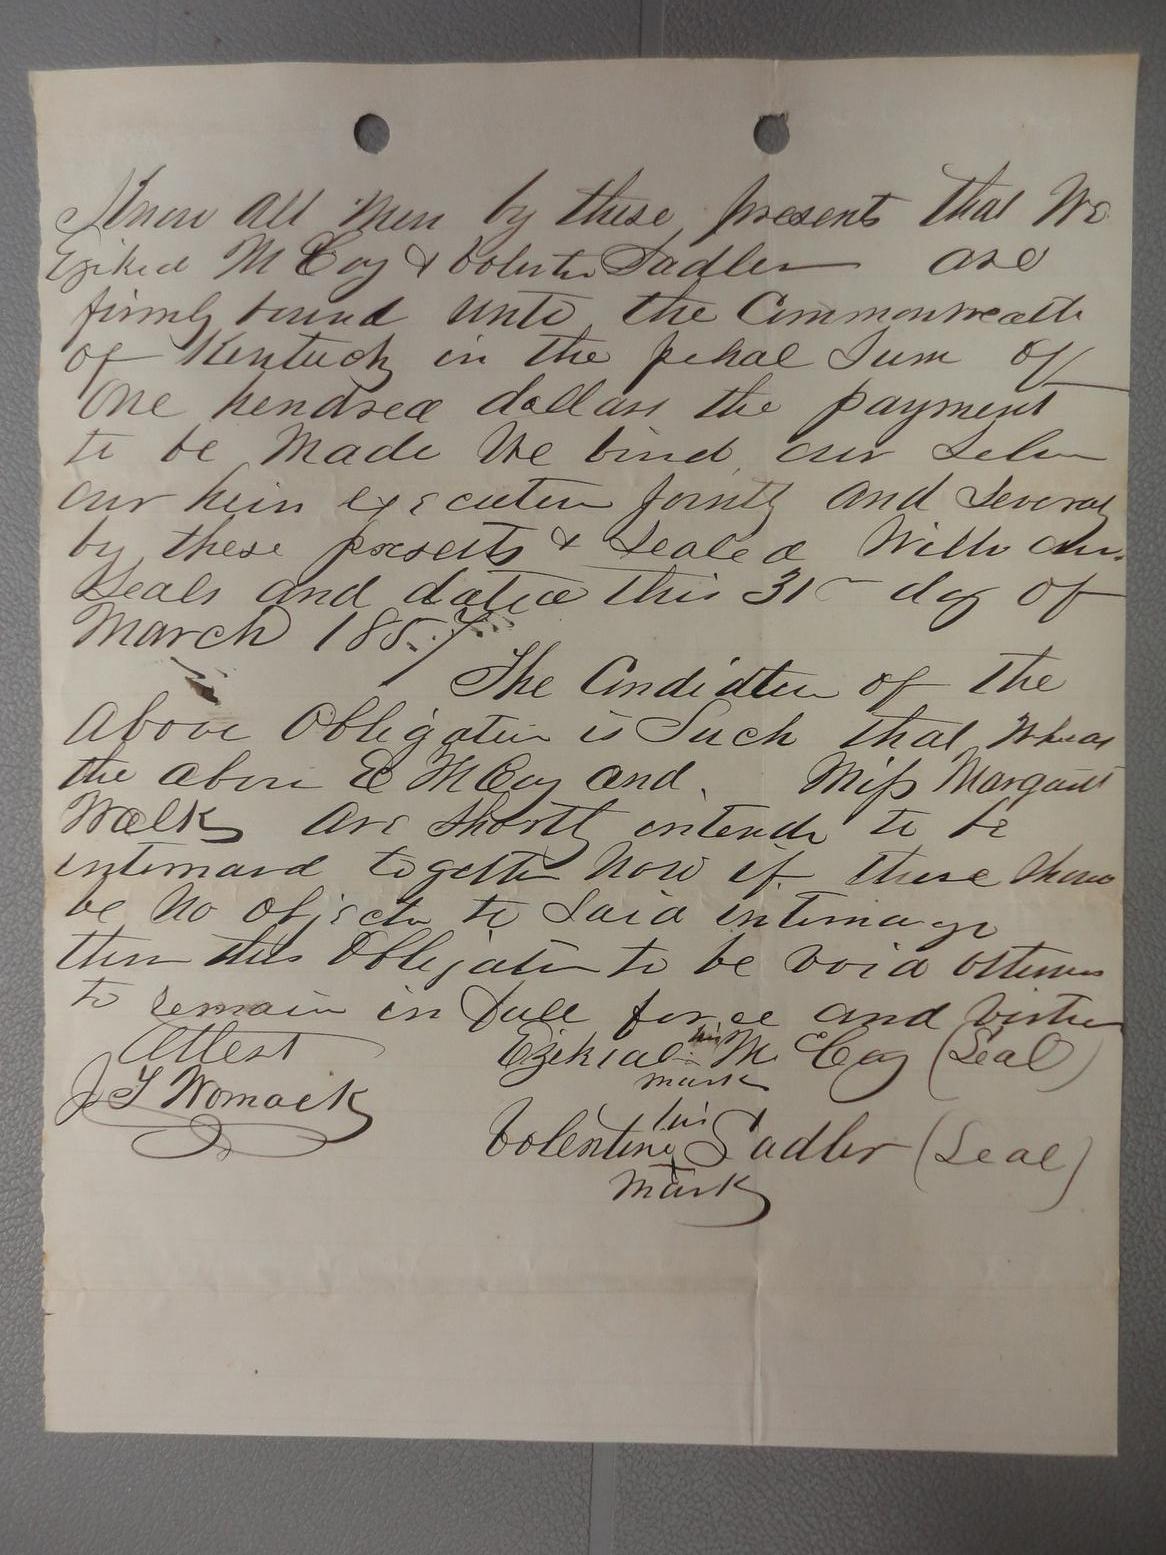 Know All Men by these presents that We
Ezikiel McCoy & Volentin Sadler are
firmly bound unto the Commonwealth
of Kentucky in the penal Sum of
One hundred dollars the payment
to be Made We bind our Selves
our heirs executers Jointly and Severaly
by these presetts & Sealed With our
Seals and dated this 31 day of
March 1857
The Condidtion of the
Above Obligation is Such that Whereas
the above E McCoy and Miss Margaret
Walks are Shortly intends to be
intermared together Now if there Shoud
be No Objectn to Said intermarage
then this Obligation to be void otherwis
to remain in full force and virtue
Attest
J T Womack
Ezikial his McCoy (Seal)
mark
his
Volentine x Sadler (Seal)
mark